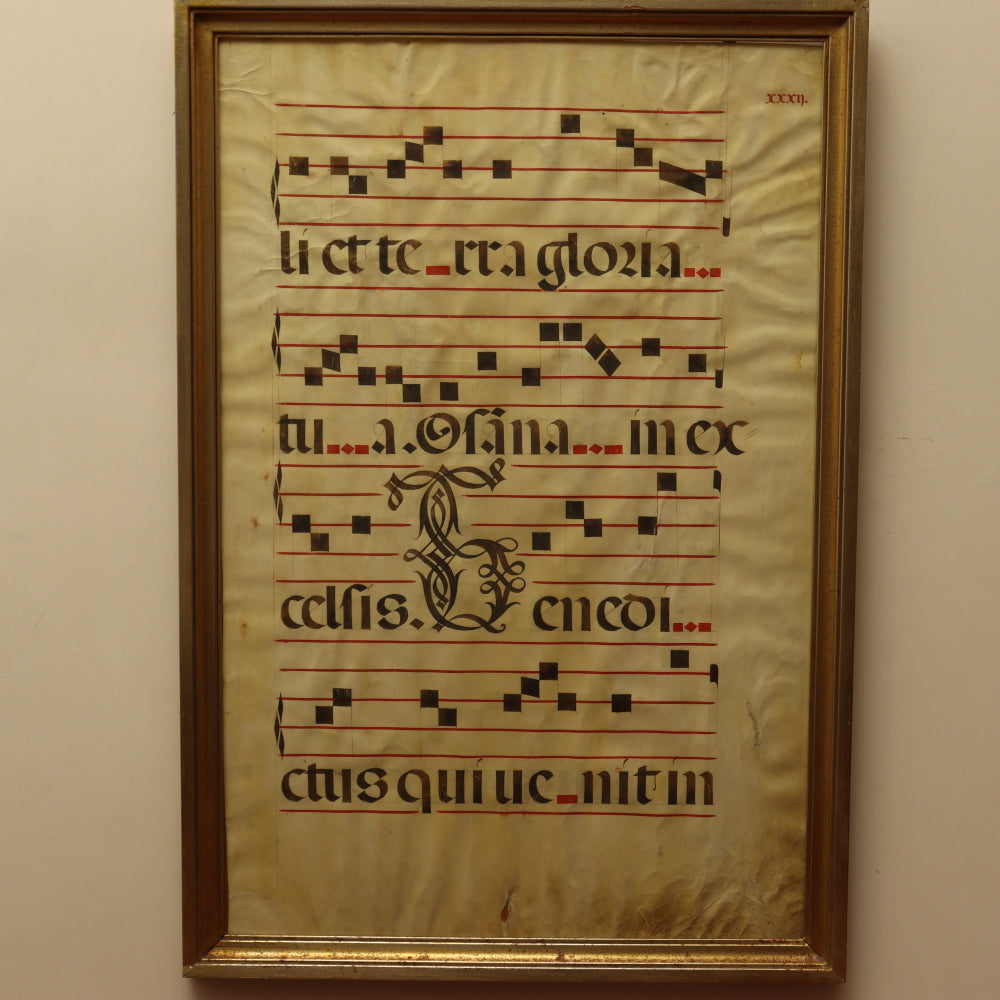 xxxij.
li et te_rra gloria...
tu...a. Osãna... in ex
celsis. Benedi...
ctus qui ue_nit in